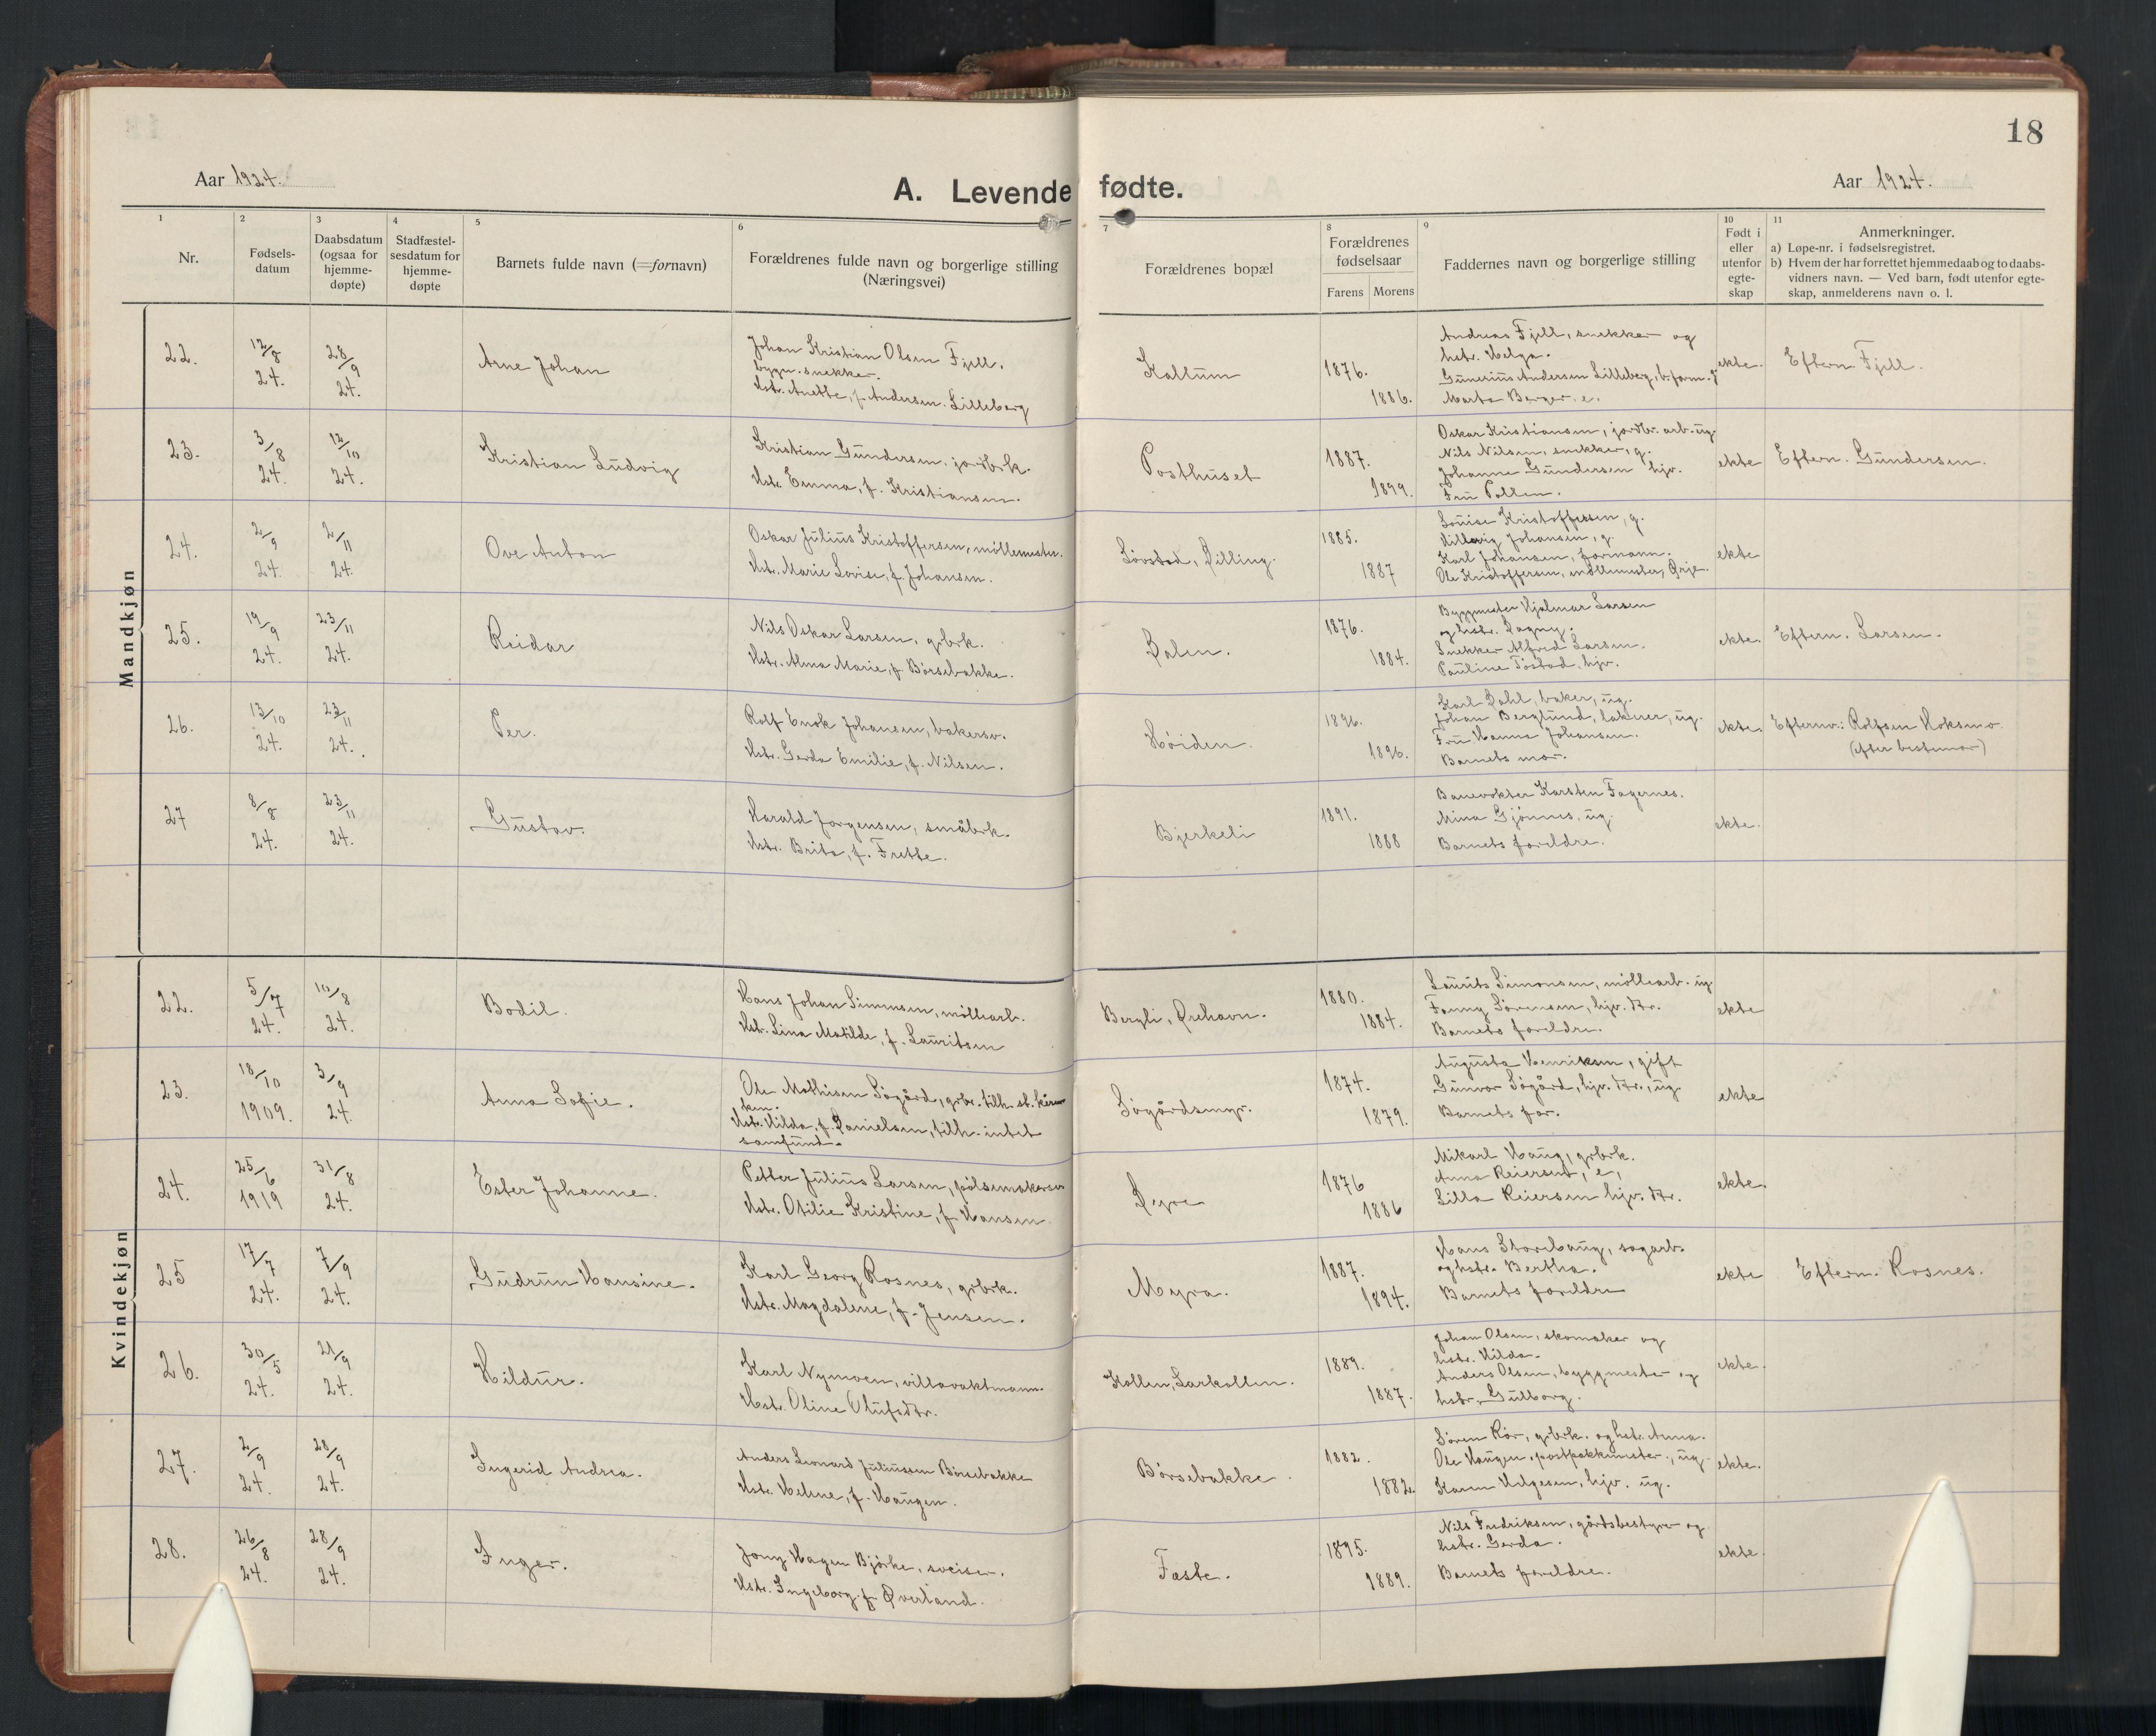 18
Aar 1924.
A. Levende fødte.
Aar 1924.
1
2
3
4
5
6
7
8
9
10
11
Nr.
Fødsels-
datum
Daabsdatum
(ogsaa for
hjemme-
døpte)
Stadfæstel-
sesdatum for
hjemme-
døpte
Barnets fulde navn (=fornavn)
Forældrenes fulde navn og borgerlige stilling
(Næringsvei)
Forældrenes bopæl
Forældrenes
fødselsaar
Farens
Morens
Faddernes navn og borgerlige stilling
Født i
eller
utenfor
egte-
skap
Anmerkninger.
a) Løpe-nr. i fødselsregistret.
b) Hvem der har forrettet hjemmedaab og to daabs-
vidners navn. — Ved barn, født utenfor egte-
skap, anmelderens navn o. l.
Mandkjøn
22.
12/8
24.
28/9
24.
Arne Johan
Johan Kristian Olsen Fjell.
bygn. snekker.
Hstr. Anette, f. Andersen Lilleberg
Kallum
1876.
1886.
Andreas Fjell, snekker og
hstr. Helga.
Gunerius Andersen Lilleberg, b. form. g
Marta Berger. e.
ekte.
Eftern. Fjell.
23.
3/8
24.
12/10
24.
Kristian Ludvig
Kristian Gundersen, jordbrk.
Hstr. Emma, f. Kristiansen.
Posthuset
1887.
1899.
Oskar Kristiansen, jordbr. arb. ug.
Nils Nilsen, snekker, g.
Johanne Gundersen hjv.
Fru Pollen.
ekte
Eftern. Gundersen.
24.
2/9
24.
2/11
24.
Ove Anton
Oskar Julius Kristoffersen, møllemester.
Hstr. Marie Lovise, f. Johansen.
Løvstad, Dilling.
1885.
1887
Louise Kristoffersen, g.
Johansen, g.
Karl Johansen, formann.
Ole Kristoffersen, møllemester, Ørje.
ekte
25.
19/9
24.
23/11
24.
Reidar
Nils Oskar Larsen, grbrk.
Hstr. Alma Marie, f. Børsebakke.
Dalen.
1876.
1884.
Byggmester Hjalmar Larsen
og hstr. Dagny.
Snekker Alfred Larsen.
Pauline Tøstad, hjv.
ekte.
Eftern. Larsen.
26.
13/10
24.
23/11
24.
Per.
Rolf Enok Johansen, bakersv.
Hstr. Gerda Emilie, f. Nilsen.
Høiden.
1896.
1896.
Karl Dahl, baker, ug.
Johan Berglund, lakerer, ug.
Fru Hanna Johansen.
Barnets mor.
ekte.
Efternv.: Rolfsen Hoksmo.
(efter bestemor)
27
8/8
24.
23/11
24.
Gustav.
Harald Jørgensen, småbrk.
Hstr. Brita, f. Frette.
Bjerkeli
1891.
1888
Banevokter Karsten Fagernes.
Mina Gjønnes, ug.
Barnets foreldre.
ekte.
Kvindekjøn
22.
5/7
24.
10/8
24.
Bodil.
Hans Johan Simonsen, møllearb.
Hstr. Lina Matilde, f. Lauritsen
Bergli, Ørehavn.
1880.
1884.
Laurits Simonsen, møllearb. ug.
Fanny Sørensen, hjv. dtr.
Barnets foreldre.
ekte
23.
18/10
1909.
3/9
24.
Anna Sofie.
Ole Mathisen Søgård, grbr. tilh. st. kirken.
Hstr. Hilda, f. Danielsen, tilh. intet
samfund.
Søgårdsmyr.
1874.
1879.
Augusta Henriksen, gift
Gunvor Søgård, hjv. dtr., ug.
Barnets far.
ekte
24.
25/6
1919
31/8
24.
Ester Johanne.
Petter Julius Larsen, pølsemakersv.
Hstr. Otilie Kristine, f. Hansen.
1876
1886
Mikael Haug, grbrk.
Anna Reiersen, e,
Silla Reiersen hjv. dtr.
ekte.
25
17/7
24.
7/9
24.
Gudrun Hansine.
Karl Georg Rosnes, grbrk.
Hstr. Magdalene, f. Jensen.
Myra.
1887.
1894.
Hans Storehaug, sagarb.
og hstr. Bertha.
Barnets foreldre
ekte
Eftern. Rosnes.
26.
30/5
24.
21/9
24.
Hildur.
Karl Nymoen, villavaktmann.
Hstr. Oline Olufsdtr.
Kollen, Larkollen.
1889.
1887.
Johan Olsen, skomaker og
hstr. Hilda.
Anders Olsen, byggmester og
hstr. Gulborg.
ekte.
27.
2/9
24.
28/9
24.
Ingerid Andrea.
Anders Leonard Juliussen Børsebakke
Hstr. Helene, f. Haugen.
Børsebakke.
1882.
1882.
Søren Rør, grbrk. og hstr. Anna.
Ole Haugen, postpakkmester, ug.
Karen Helgesen, hjv. ug.
ekte.
28.
26/8
24.
28/9
24.
Inger.
Jony Hagen Bjørke, sveiser.
Hstr. Ingeborg f. Øverland.
Faste.
1895.
1889.
Nils Fredriksen, gårdsbestyrer og
hstr. Gerda.
Barnets foreldre.
ekte.